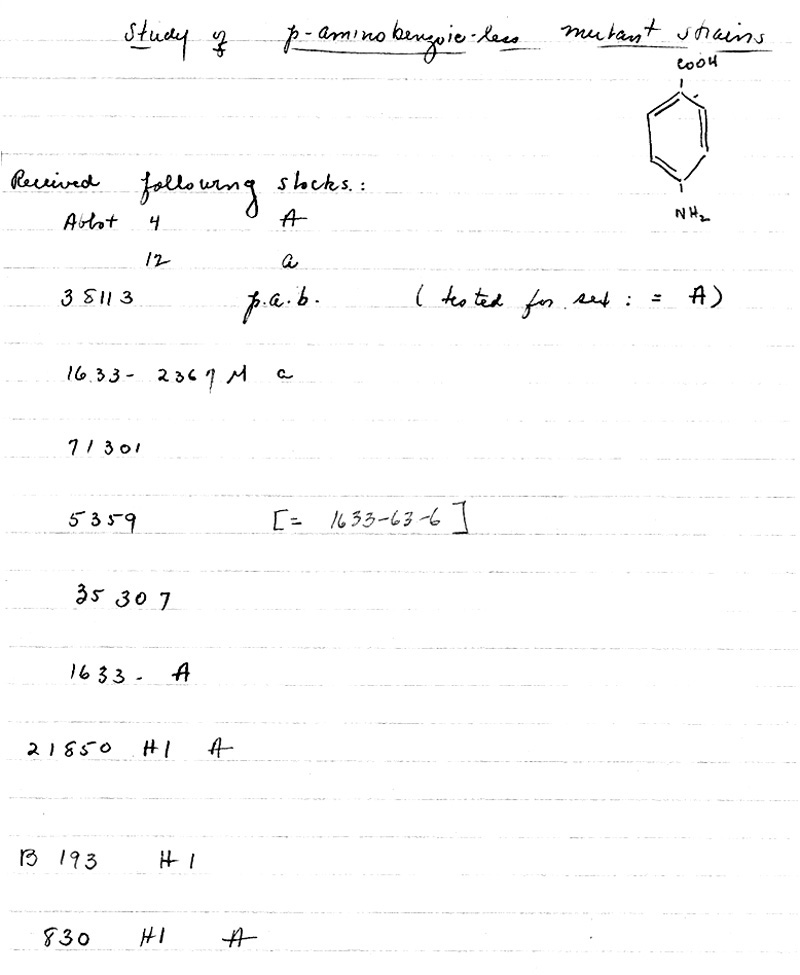 Study of p-aminobenzoic-less mutant strains
COOH
NH2
Received following stocks.:
Abbot 4 A
12 a
38113 p.a.b. (tested for sex : = A)
1633- 2367 M a
71301
5359 [= 1633-63-6]
35307
1633- A
21850 H1 A
B 193 H1
830 H1 A